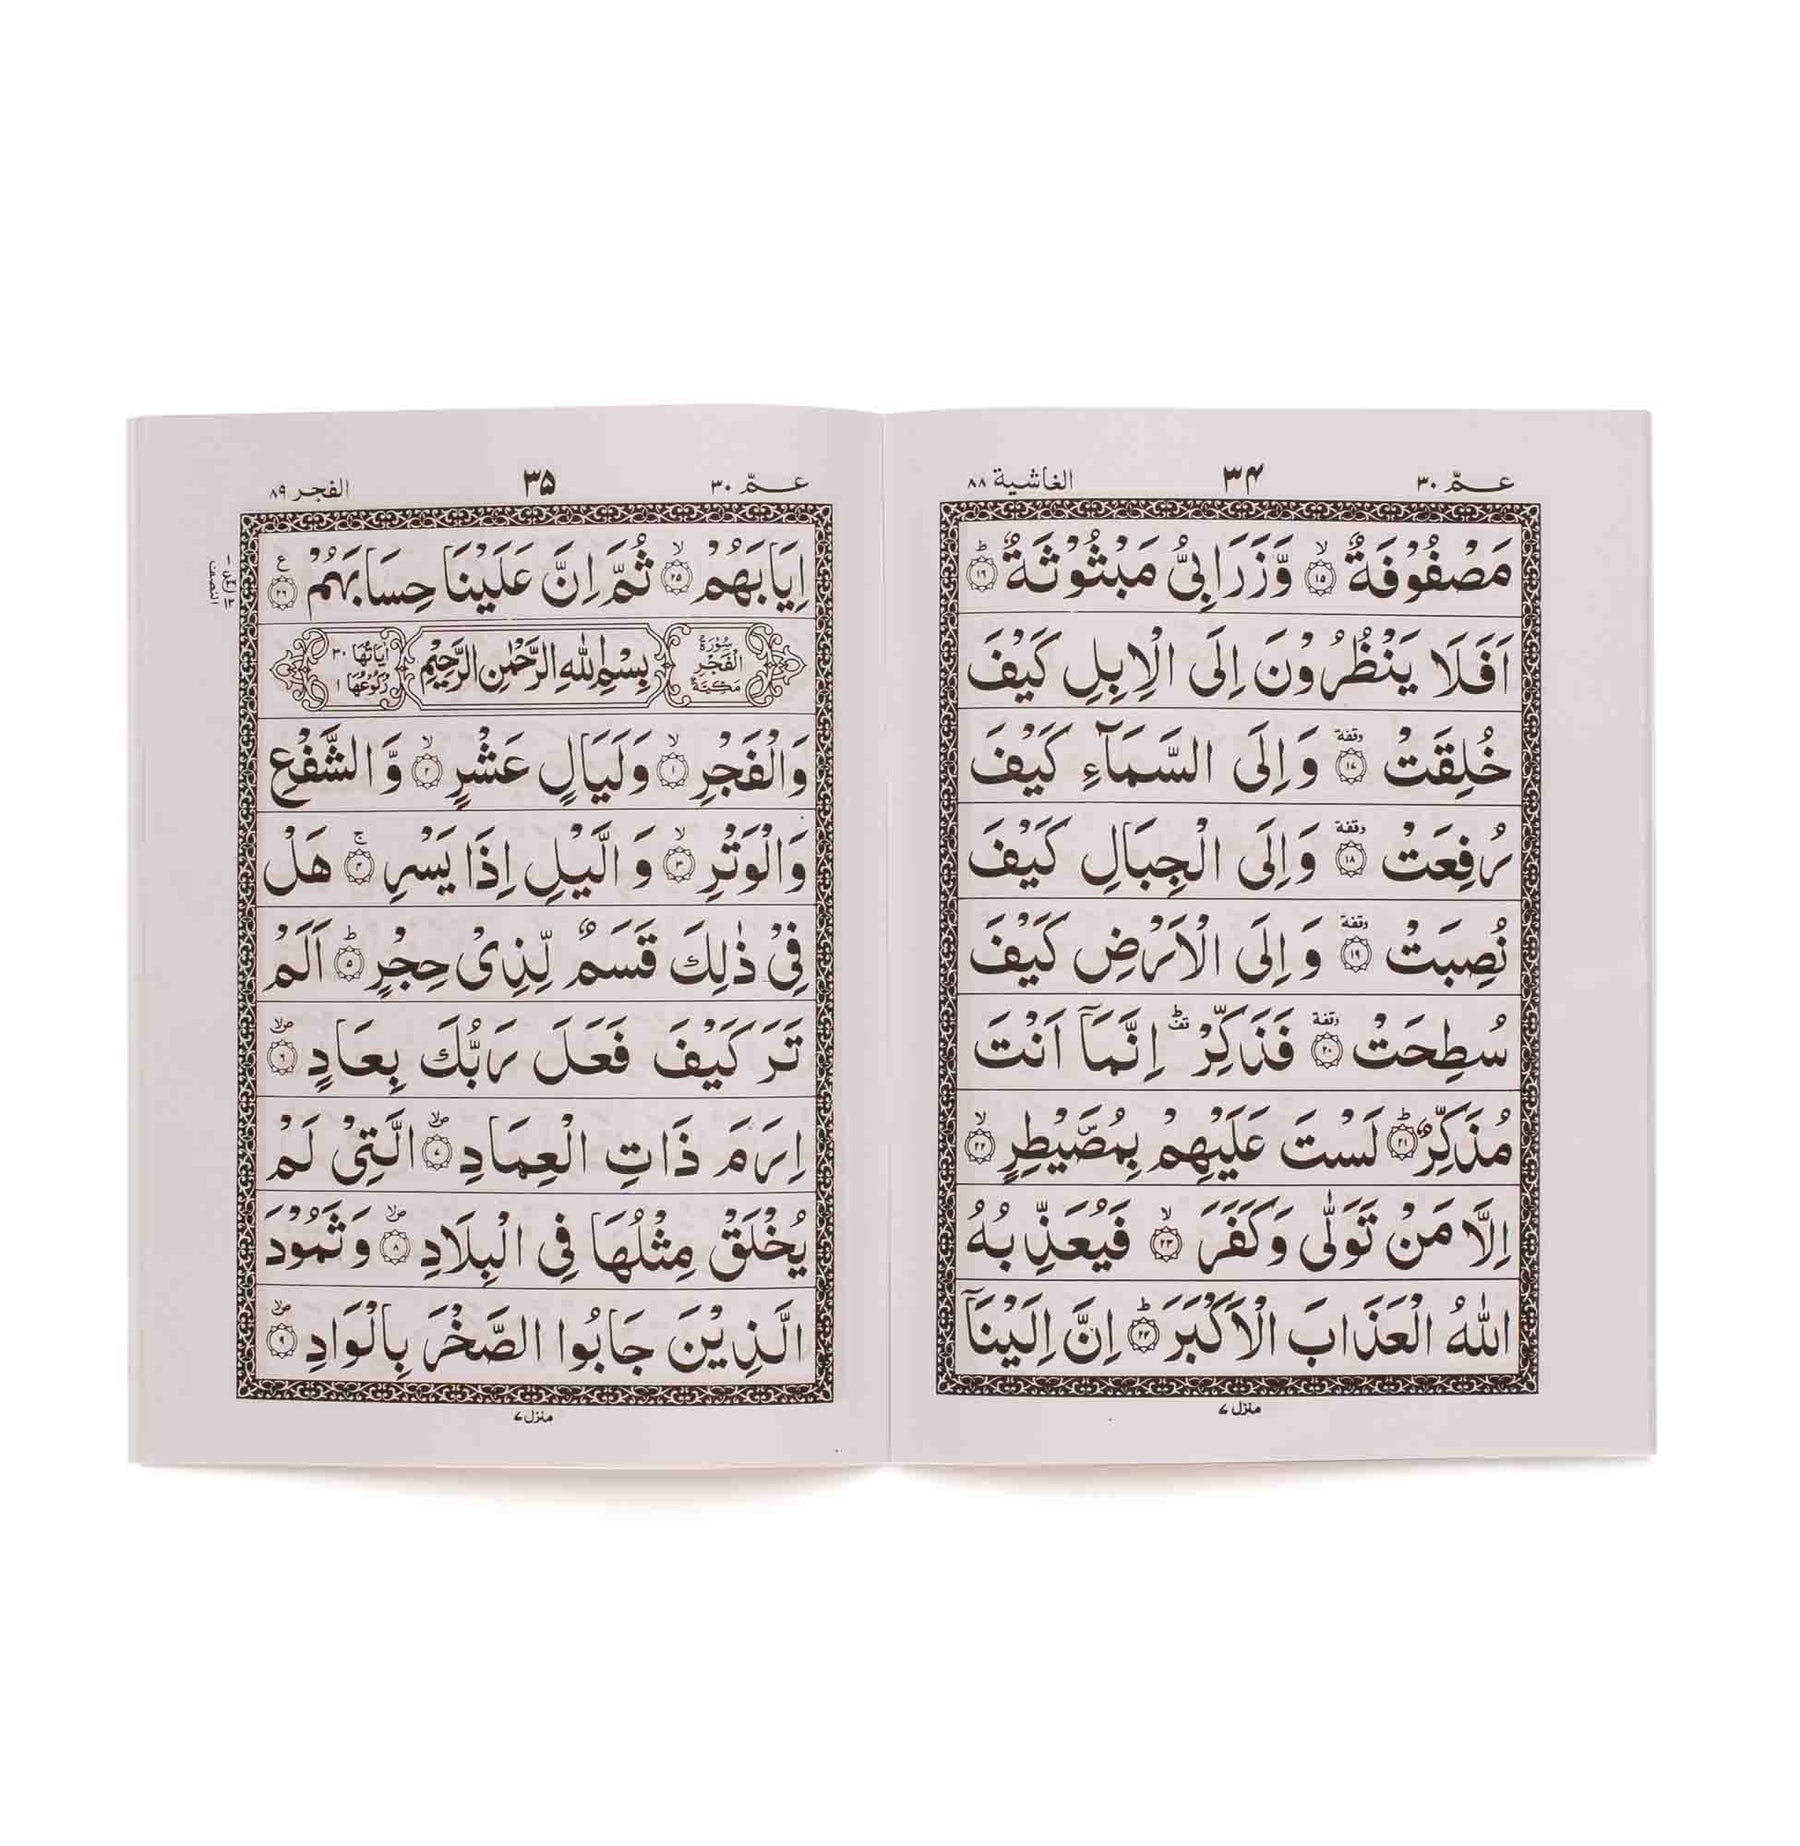 عمّ ٣٠
٣٤
الغاشية ٨٨
مَصْفُوْفَةٌ ۙ﴿١٥﴾ وَّزَرَابِيُّ مَبْثُوْثَةٌ ؕ﴿١٦﴾
اَفَلَا يَنْظُرُوْنَ اِلَى الْاِبِلِ كَيْفَ
خُلِقَتْ ﴿١٧﴾ وقفة وَاِلَى السَّمَآءِ كَيْفَ
رُفِعَتْ ﴿١٨﴾ وقفة وَاِلَى الْجِبَالِ كَيْفَ
نُصِبَتْ ﴿١٩﴾ وقفة وَاِلَى الْاَرْضِ كَيْفَ
سُطِحَتْ ﴿٢٠﴾ وقفة فَذَكِّرْ قف اِنَّمَآ اَنْتَ
مُذَكِّرٌ ؕ﴿٢١﴾ لَسْتَ عَلَيْهِمْ بِمُصَۜيْطِرٍ ۙ﴿٢٢﴾
اِلَّا مَنْ تَوَلّٰى وَكَفَرَ ۙ﴿٢٣﴾ فَيُعَذِّبُهُ
اللّٰهُ الْعَذَابَ الْاَكْبَرَ ؕ﴿٢٤﴾ اِنَّ اِلَيْنَآ
منزل ٧
عمّ ٣٠
٣٥
الفجر ٨٩
اِيَابَهُمْ ۙ﴿٢٥﴾ ثُمَّ اِنَّ عَلَيْنَا حِسَابَهُمْ ﴿٢٦﴾ ع
النصف
سُوْرَةُ الْفَجْرِ مَكِّيَّةٌ
بِسْمِ اللّٰهِ الرَّحْمٰنِ الرَّحِيْمِ
اٰيَاتُهَا ٣٠ رُكُوْعُهَا ١
وَالْفَجْرِ ۙ﴿١﴾ وَلَيَالٍ عَشْرٍ ۙ﴿٢﴾ وَّالشَّفْعِ
وَالْوَتْرِ ۙ﴿٣﴾ وَالَّيْلِ اِذَا يَسْرِ ۚ﴿٤﴾ هَلْ
فِيْ ذٰلِكَ قَسَمٌ لِّذِيْ حِجْرٍ ؕ﴿٥﴾ اَلَمْ
تَرَ كَيْفَ فَعَلَ رَبُّكَ بِعَادٍ ۪ۙ﴿٦﴾
اِرَمَ ذَاتِ الْعِمَادِ ۪ۙ﴿٧﴾ الَّتِيْ لَمْ
يُخْلَقْ مِثْلُهَا فِي الْبِلَادِ ۪ۙ﴿٨﴾ وَثَمُوْدَ
الَّذِيْنَ جَابُوا الصَّخْرَ بِالْوَادِ ۪ۙ﴿٩﴾
منزل ٧